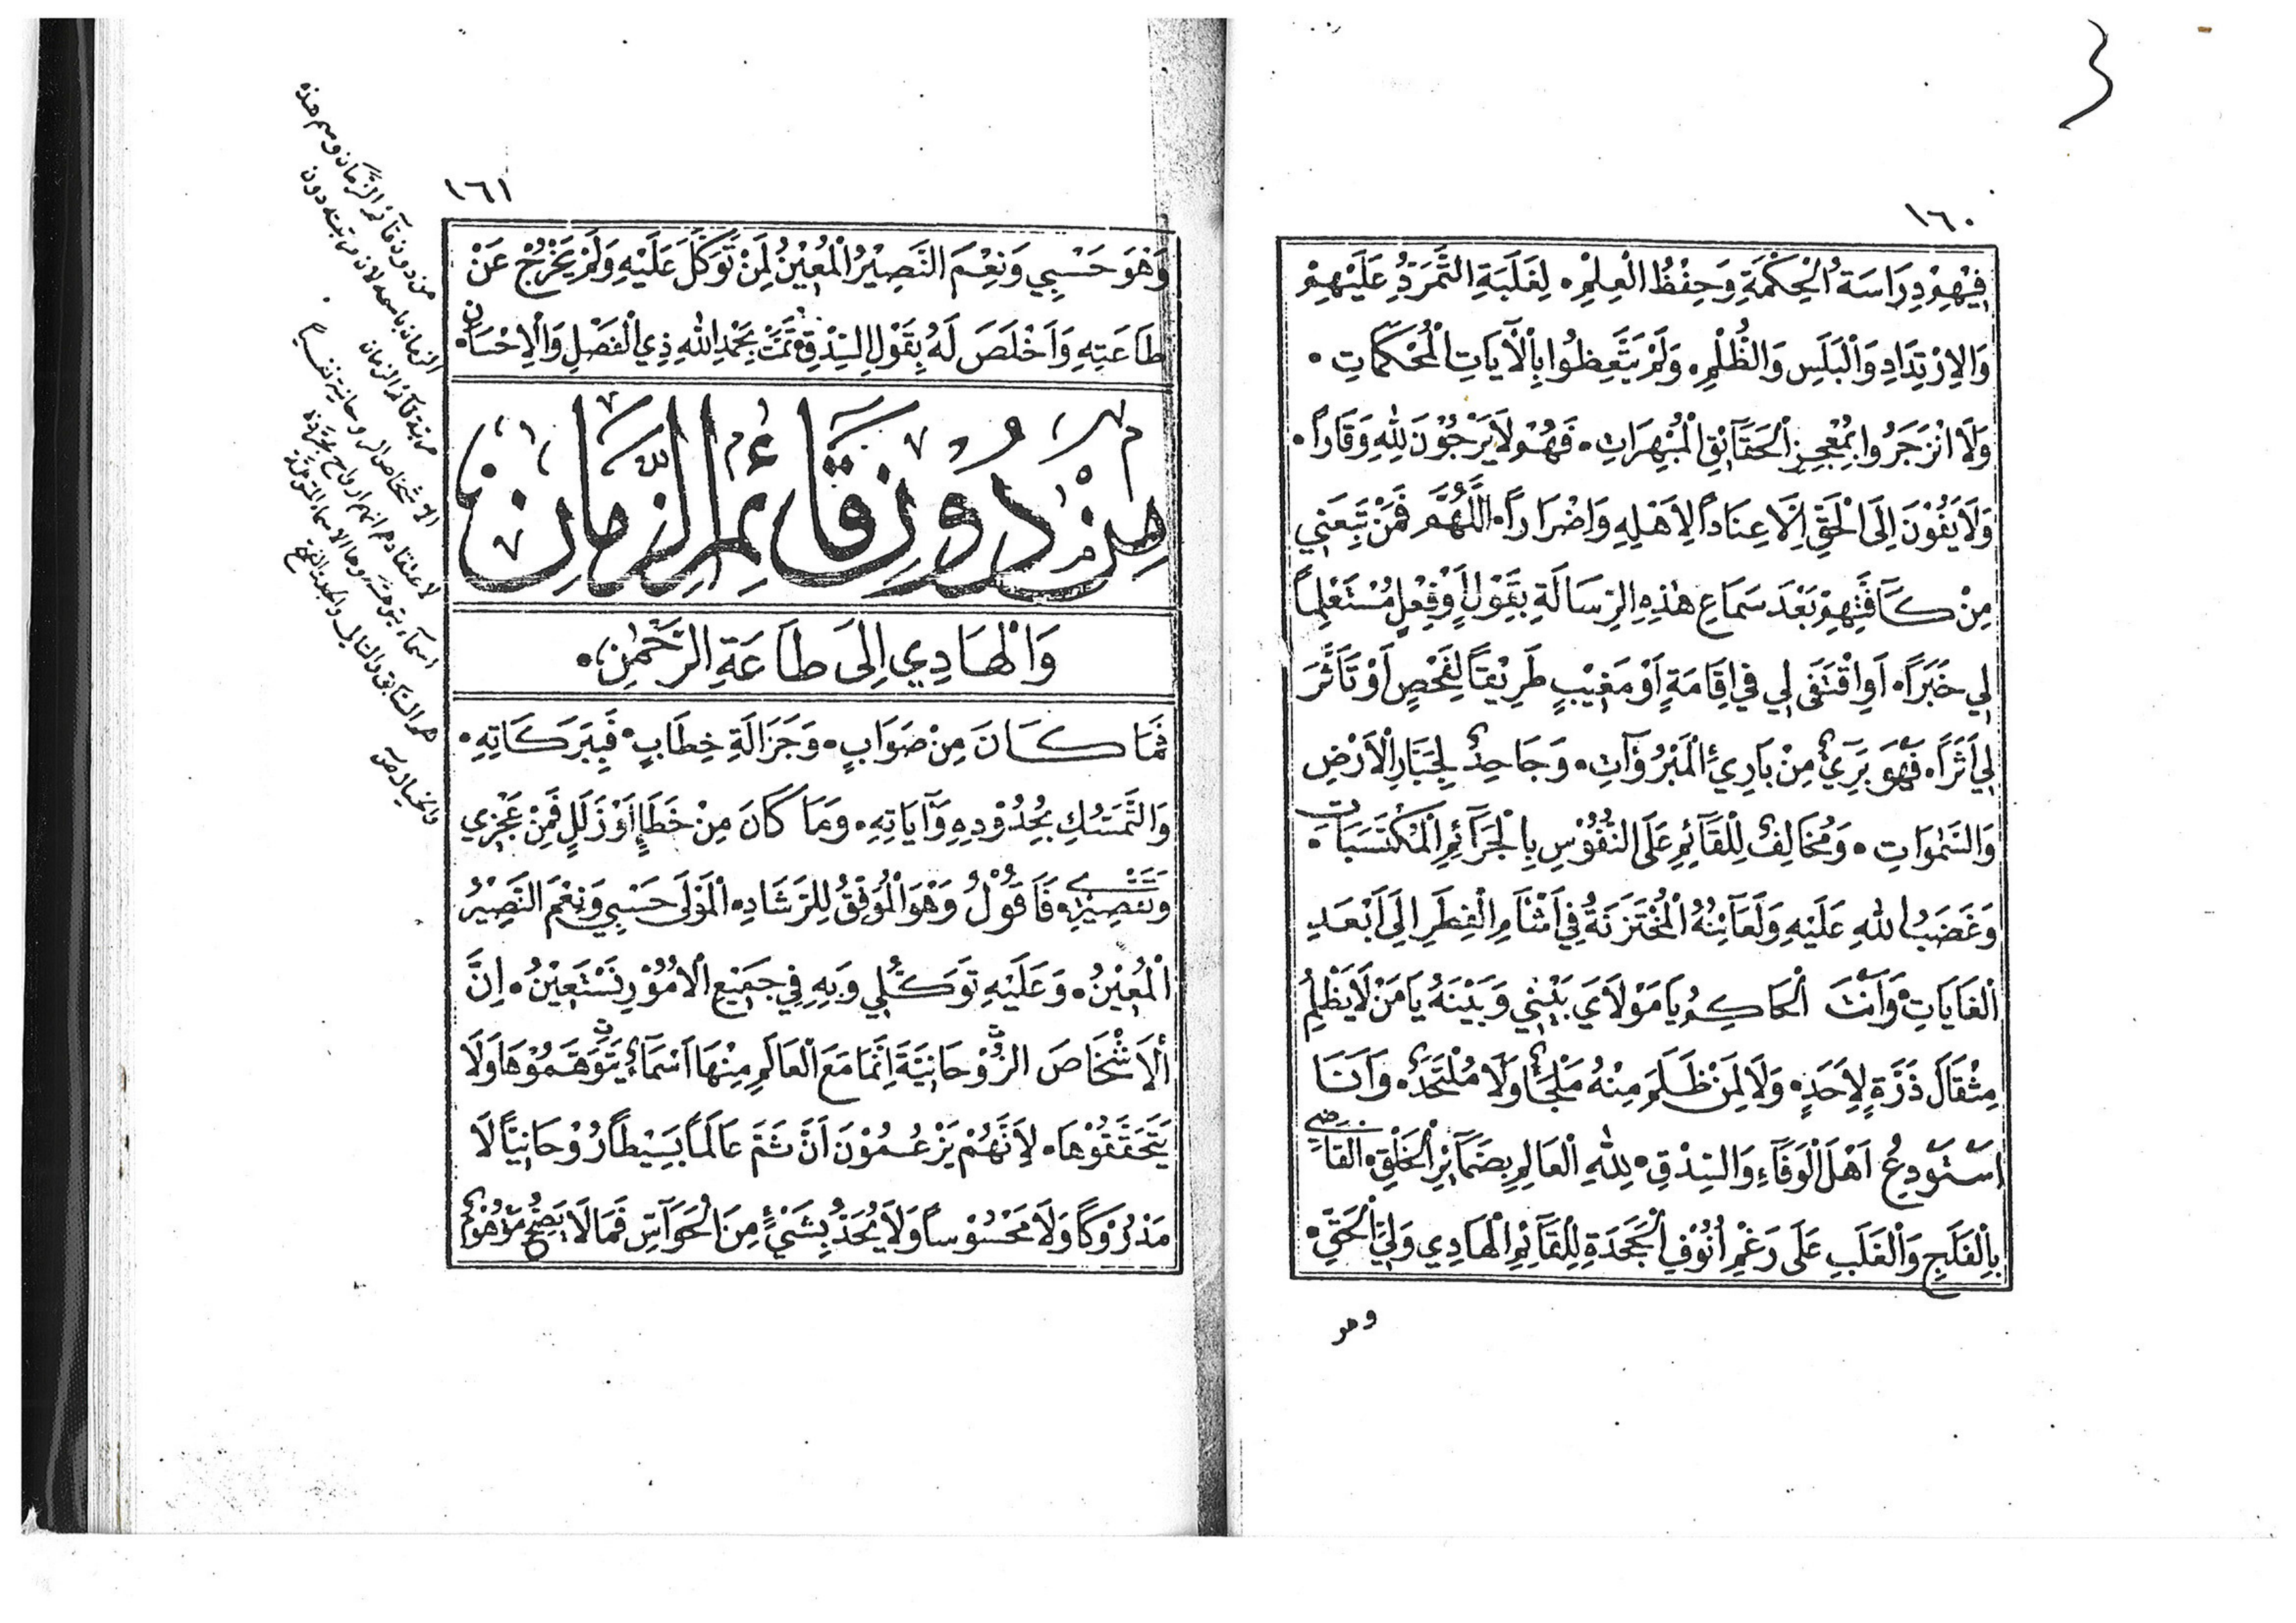 ١٦٠
فِيْهِمْ دِرَاسَةُ الْحِكْمَةِ وَحِفْظُ الْعِلْمِ۰ لِغَلَبَةِ التَّمَرُّدِ عَلَيْهِمْ
وَالاِرْتِدَادِ وَالْبَلَسِ وَالظُّلْمِ۰ وَلَمْ يَتَّعِظُوا بِالْآيَاتِ الْمُحْكَمَاتِ۰
وَلَا انْزَجَرُوا بِمُعْجِزِ الْحَقَائِقِ الْمُبْهِرَاتِ۰ فَهُمْ لَا يَرْجُوْنَ لِلّٰهِ وَقَاراً۰
وَلَا يَفُوْنَ اِلَى الْحَقِّ اِلَّا عِنَاداً لِاَهْلِهِ وَاضْرَاراً۰ اَللّٰهُمَّ فَمَنْ تَبِعَنِي
مِنْ كَآفَّتِهِمْ بَعْدَ سَمَاعِ هٰذِهِ الرِّسَالَةِ بِقَوْلٍ اَوْ فِعْلٍ مُسْتَعْلِماً
لِي خَبَرًا۰ اَوِ اقْتَفَى لِي فِي اِقَامَةٍ اَوْ مَغِيْبٍ طَرِيْقاً لِفَحْصٍ اَوْ تَاَثَّرَ
لِي اَثَرًا۰ فَهُوَ بَرِيْءٌ مِنْ بَارِئِ الْمَبْرُوْآتِ۰ وَجَاحِدٌ لِجَبَّارِ الْاَرْضِ
وَالسَّمٰوَاتِ۰ وَمُخَالِفٌ لِلْقَآئِمِ عَلَى النُّفُوْسِ بِالْجَرَآئِمِ الْمُكْتَسَبَاتِ۰
وَغَضَبُ اللّٰهِ عَلَيْهِ وَلَعَآئِنُهُ الْمُخْتَزَنَةُ فِي اَثْنَاءِ الْفِطَرِ اِلَى اَبْعَدِ
الْغَايَاتِ۰ وَاَنْتَ الْحَاكِمُ يَا مَوْلَايَ بَيْنِي وَبَيْنَهُ يَا مَنْ لَا يَظْلِمُ
مِثْقَالَ ذَرَّةٍ لِاَحَدٍ۰ وَلَا لِمَنْ ظَلَمَ مِنْهُ مَلْجَأٌ وَلَا مُلْتَحَدٌ۰ وَاَنَا
اَسْتَوْدِعُ اَهْلَ الْوَفَآءِ وَالسِّدْقِ۰ لِلّٰهِ الْعَالِمِ بِضَمَآئِرِ الْخَلْقِ۰ الْقَاضِي
بِالْفَلَجِ وَالْغَلَبِ عَلَى رَغْمِ اُنُوْفِ الْجَحَدَةِ لِلْقَآئِمِ الْهَادِي وَلِيِّ الْحَقِّ۰
وهو
١٦١
وَهُوَ حَسْبِي وَنِعْمَ النَّصِيْرُ الْمُعِيْنُ لِمَنْ تَوَكَّلَ عَلَيْهِ وَلَمْ يَخْرُجْ عَنْ
طَاعَتِهِ وَاَخْلَصَ لَهُ بِقَوْلِ السِّدْقِ۰ تَمَّتْ بِحَمْدِ اللّٰهِ ذِي الْفَضْلِ وَالْاِحْسَانِ۰
مِنْ دُوْنِ قَائِمِ الزَّمَانِ
وَالْهَادِي اِلَى طَاعَةِ الرَّحْمٰنِ۰
فَمَا كَانَ مِنْ صَوَابٍ۰ وَجَزَالَةِ خِطَابٍ۰ فَبِبَرَكَاتِهِ۰
وَالتَّمَسُّكِ بِحُدُوْدِهِ وَآيَاتِهِ۰ وَمَا كَانَ مِنْ خَطَإٍ اَوْ زَلَلٍ فَمِنْ عَجْزِي
وَتَقْصِيْرِي۰ فَاَقُوْلُ وَهُوَ الْمُوَفِّقُ لِلرَّشَادِ۰ الْمَوْلَى حَسْبِي وَنِعْمَ النَّصِيْرُ
الْمُعِيْنُ۰ وَعَلَيْهِ تَوَكُّلِي وَبِهِ فِي جَمِيْعِ الْاُمُوْرِ نَسْتَعِيْنُ۰ اِنَّ
الْاَشْخَاصَ الرُّوْحَانِيَّةَ اِنَّمَا مَعَ الْعَالَمِ مِنْهَا اَسْمَآءٌ يَتَوَهَّمُوْهَا وَلَا
يَتَحَقَّقُوْهَا۰ لِاَنَّهُمْ يَزْعُمُوْنَ اَنَّ ثَمَّ عَالَماً بَسِيْطاً رُوْحَانِيًّا لَا
مَدْرُوْكًا وَلَا مَحْسُوْساً وَلَا يُحَدُّ بِشَيْءٍ مِنَ الْحَوَآسِّ فَمَا لَا يَصِحُّ
من دون قآئم الزَّمان وسم هذه
الزمان باسمه لان مرتبته دون
مرتبة قآئم الزمان
الاشخاص الروحانية
لاعتقادهم انهم ارواح مجرّدة
اسمآء يتوهمونها الاسماء المتوهمة
هم السَّابق والتالي والجد والفتح
والخيال